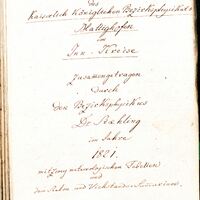 des
Kaiserlich Königlichen Bezirksphysikats
Mattighofen
im
Inn-Kreise
zusammengetragen
durch
den Bezirksphysikus
Dr Stehling
im Jahre
1821.
mit meteorologischen Tabellen
und
den Vichstandes